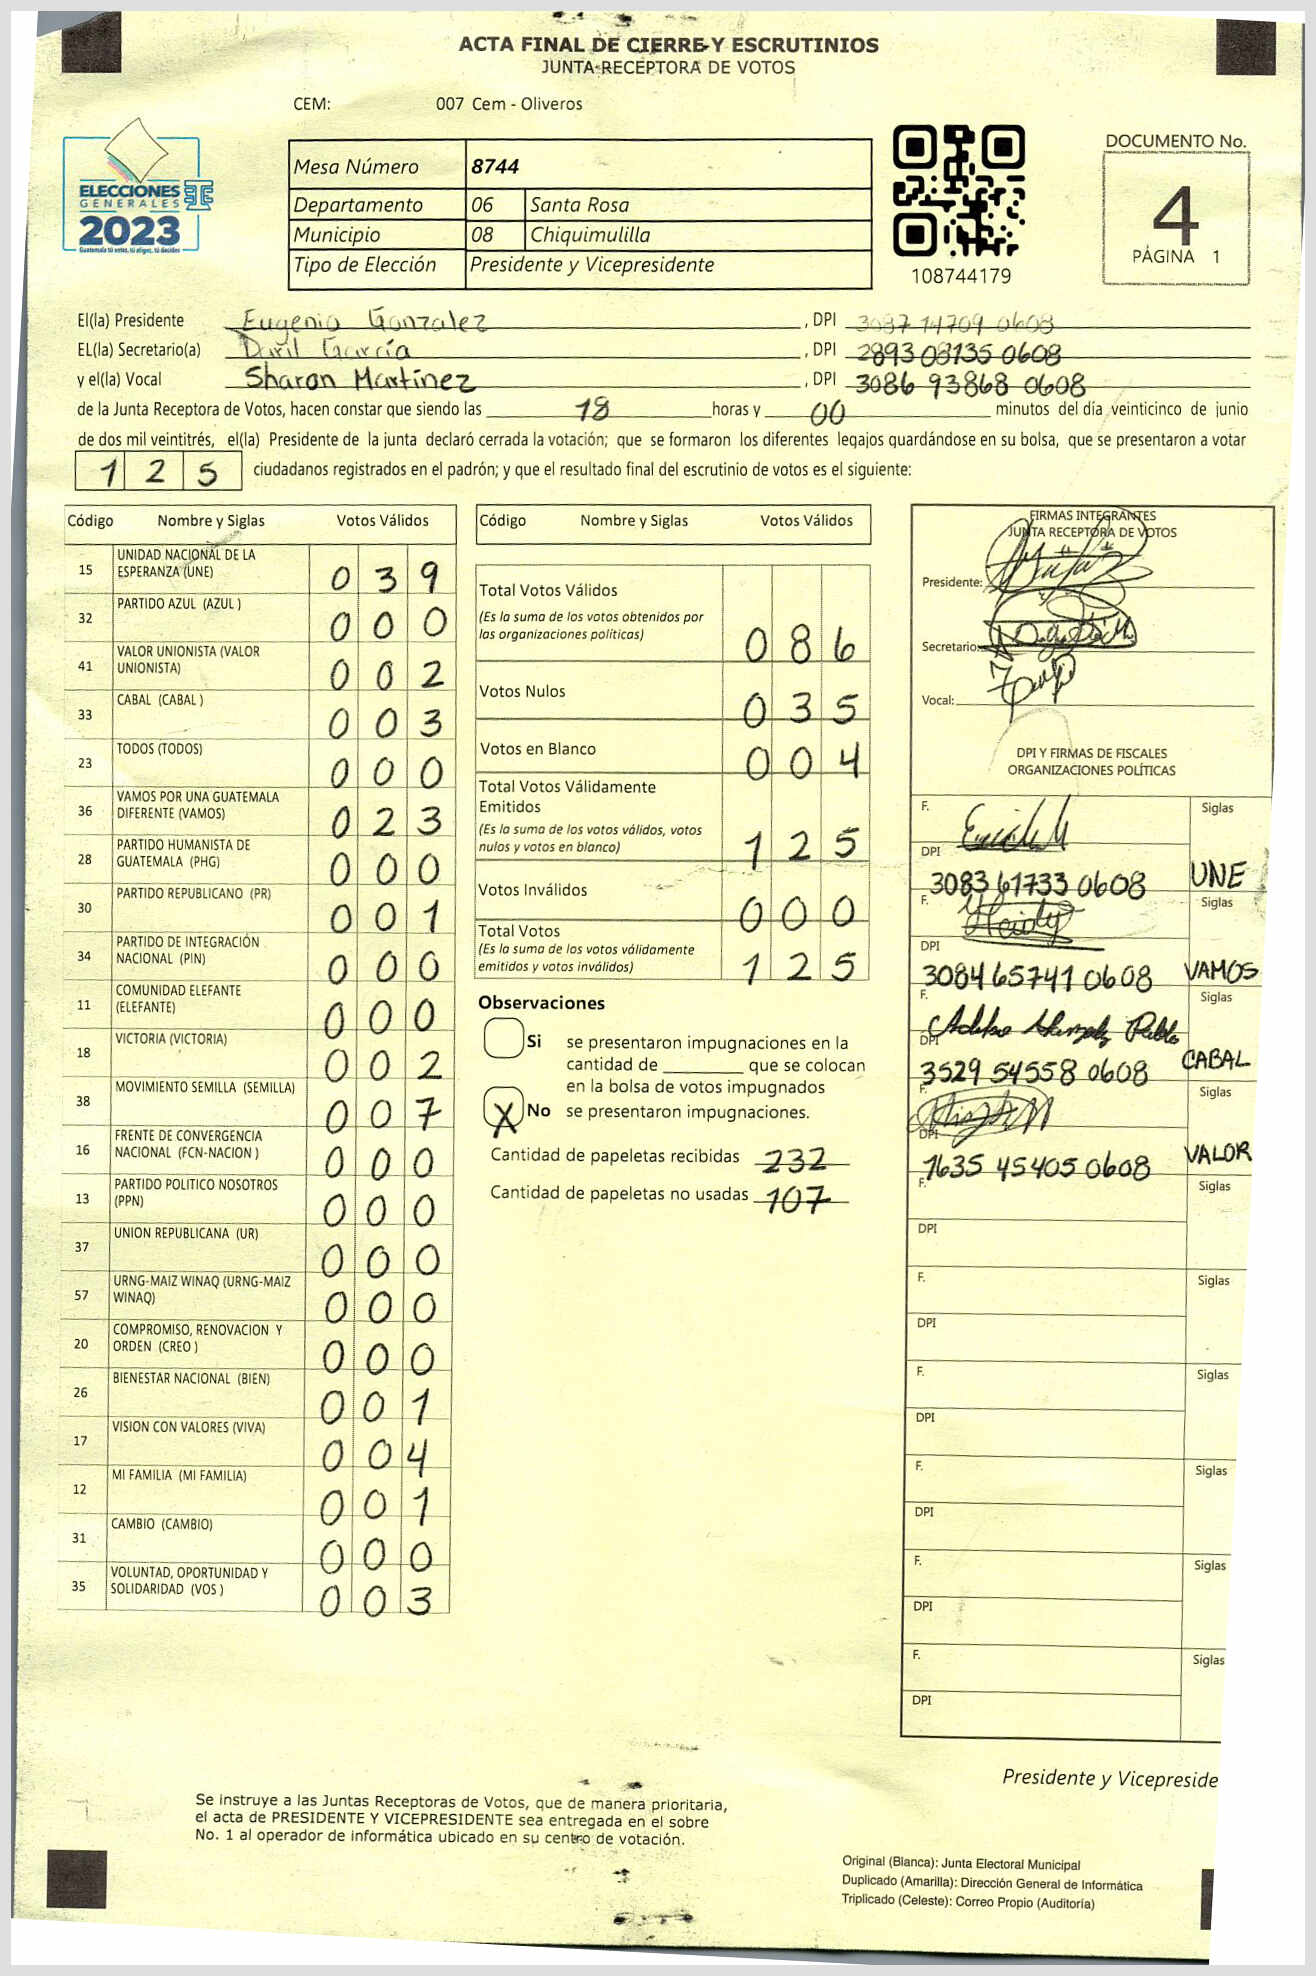 ACTA FINAL DE CIERRE Y ESCRUTINIOS
JUNTA RECEPTORA DE VOTOS
CEM: 007 Cem - Oliveros
ELECCIONES
GENERALES
2023
Guatemala tú votas, tú eliges, tú decides
Mesa Número 8744
Departamento 06 Santa Rosa
Municipio 08 Chiquimulilla
Tipo de Elección Presidente y Vicepresidente
108744179
DOCUMENTO No.
4
PÁGINA 1
El(la) Presidente Eugenio Gonzalez , DPI 3087 14709 0608
EL(la) Secretario(a) Daril García , DPI 2893 08135 0608
y el(la) Vocal Sharon Martínez , DPI 3086 93868 0608
de la Junta Receptora de Votos, hacen constar que siendo las 18 horas y 00 minutos del día veinticinco de junio
de dos mil veintitrés, el(la) Presidente de la junta declaró cerrada la votación; que se formaron los diferentes legajos quardándose en su bolsa, que se presentaron a votar
125 ciudadanos registrados en el padrón; y que el resultado final del escrutinio de votos es el siguiente:
Código Nombre y Siglas Votos Válidos
15 UNIDAD NACIONAL DE LA
ESPERANZA (UNE) 039
32 PARTIDO AZUL (AZUL ) 000
41 VALOR UNIONISTA (VALOR
UNIONISTA) 002
33 CABAL (CABAL ) 003
23 TODOS (TODOS) 000
36 VAMOS POR UNA GUATEMALA
DIFERENTE (VAMOS) 023
28 PARTIDO HUMANISTA DE
GUATEMALA (PHG) 000
30 PARTIDO REPUBLICANO (PR) 001
34 PARTIDO DE INTEGRACIÓN
NACIONAL (PIN) 000
11 COMUNIDAD ELEFANTE
(ELEFANTE) 000
18 VICTORIA (VICTORIA) 002
38 MOVIMIENTO SEMILLA (SEMILLA) 007
16 FRENTE DE CONVERGENCIA
NACIONAL (FCN-NACION ) 000
13 PARTIDO POLITICO NOSOTROS
(PPN) 000
37 UNION REPUBLICANA (UR) 000
57 URNG-MAIZ WINAQ (URNG-MAIZ
WINAQ) 000
20 COMPROMISO, RENOVACION Y
ORDEN (CREO ) 000
26 BIENESTAR NACIONAL (BIEN) 001
17 VISION CON VALORES (VIVA) 004
12 MI FAMILIA (MI FAMILIA) 001
31 CAMBIO (CAMBIO) 000
35 VOLUNTAD, OPORTUNIDAD Y
SOLIDARIDAD (VOS ) 003
Código Nombre y Siglas Votos Válidos
Total Votos Válidos
(Es la suma de los votos obtenidos por
las organizaciones políticas) 086
Votos Nulos 035
Votos en Blanco 004
Total Votos Válidamente
Emitidos
(Es la suma de los votos válidos, votos
nulos y votos en blanco) 125
Votos Inválidos 000
Total Votos
(Es la suma de los votos válidamente
emitidos y votos inválidos) 125
Observaciones
Si se presentaron impugnaciones en la
cantidad de ________ que se colocan
en la bolsa de votos impugnados
X No se presentaron impugnaciones.
Cantidad de papeletas recibidas 232
Cantidad de papeletas no usadas 107
FIRMAS INTEGRANTES
JUNTA RECEPTORA DE VOTOS
Presidente:
Secretario:
Vocal:
DPI Y FIRMAS DE FISCALES
ORGANIZACIONES POLÍTICAS
F. Siglas
DPI 3083 61733 0608 UNE
F. Heidy Siglas
DPI 3084 65741 0608 VAMOS
F. Siglas
DPI 3529 54558 0608 CABAL
F. Siglas
DPI 1635 45405 0608 VALOR
F. Siglas
DPI
F. Siglas
DPI
F. Siglas
DPI
F. Siglas
DPI
F. Siglas
DPI
F. Siglas
DPI
Presidente y Vicepreside
Se instruye a las Juntas Receptoras de Votos, que de manera prioritaria,
el acta de PRESIDENTE Y VICEPRESIDENTE sea entregada en el sobre
No. 1 al operador de informática ubicado en su centro de votación.
Original (Blanca): Junta Electoral Municipal
Duplicado (Amarilla): Dirección General de Informática
Triplicado (Celeste): Correo Propio (Auditoría)